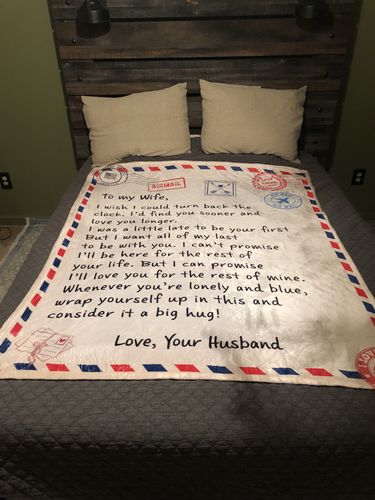 AIRMAIL
To my Wife,
I wish I could turn back the
clock. I'd find you sooner and
love you longer.
I was a little late to be your first
But I want all of my last
to be with you. I can't promise
I'll be here for the rest of
your life. But I can promise
I'll love you for the rest of mine.
Whenever you're lonely and blue,
wrap yourself up in this and
consider it a big hug!
Love, Your Husband